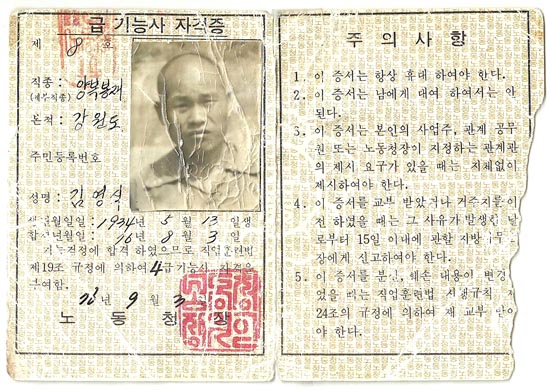 급 기능사 자격증
제 8 호
직종: 양복봉재
(세부직종)
본적: 강원도
주민등록번호
성명: 김영식
생년월일: 1934년 5월 13일생
합격년월일: 76년 8월 3일
기능검정에 합격 하였으므로 직업훈련법
제19조 규정에 의하여 4급기능사 자격을
부여함.
76년 9월 3
노동청장
주의사항
1. 이 증서는 항상 휴대 하여야 한다.
2. 이 증서는 남에게 대여 하여서는 안
된다.
3. 이 증서는 본인의 사업주, 관계 공무
원 또는 노동청장이 지정하는 관계관
의 제시 요구가 있을 때는 지체없이
제시하여야 한다.
4. 이 증서를 교부 받았거나 거주지를 이
전 하였을 때는 그 사유가 발생한 날
로부터 15일 이내에 관할 지방
장에게 신고하여야 한다.
5. 이 증서를 분실, 훼손 내용이 변경
었을 때는 직업훈련법 시행규칙 제
24조의 규정에 의하여 재 교부 받아
야 한다.